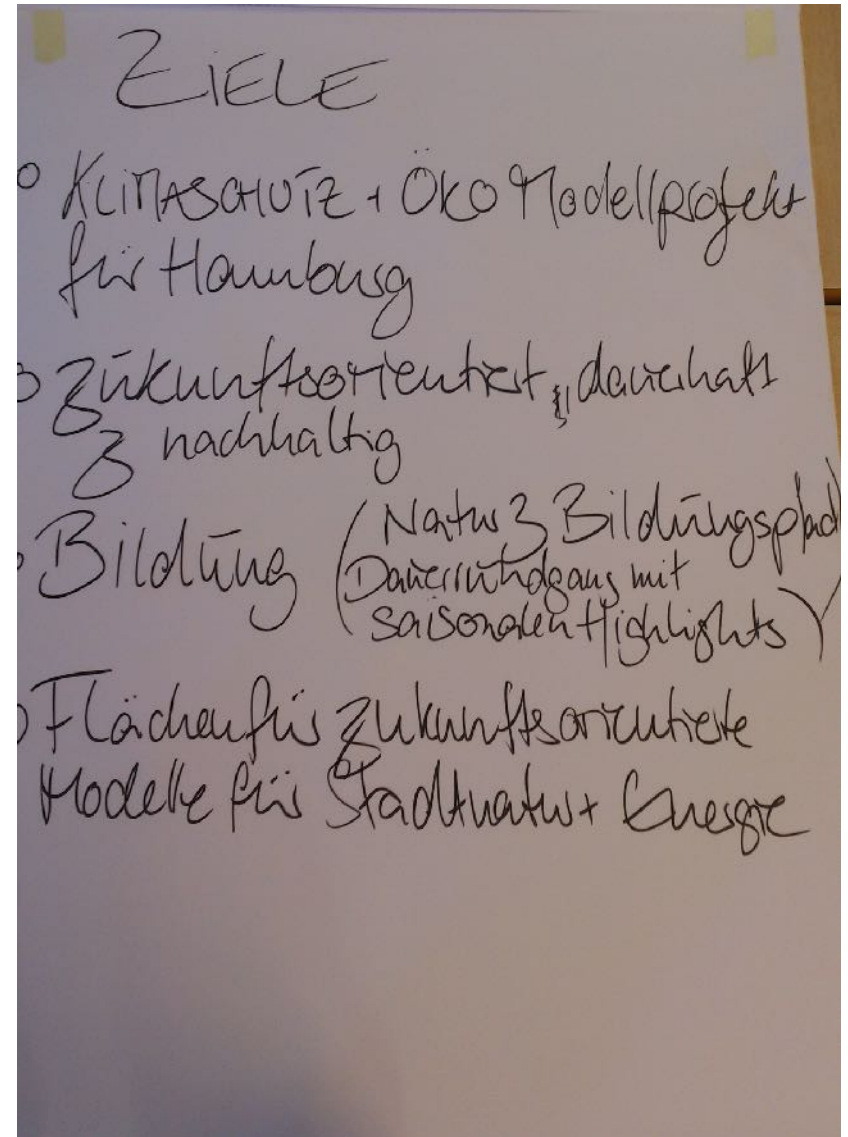 ZIELE
○ KLIMASCHUTZ + ÖKO Modellprojekt
für Hamburg
○ Zukunftsorientiert, dauerhaft
& nachhaltig
○ Bildung (Natur & Bildungspfad
Dauerrundgang mit
saisonalen Highlights)
○ Flächen für zukunftsorientierte
Modelle für Stadtnatur + Energie